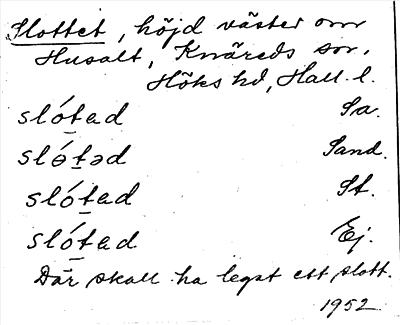 Slottet, höjd väster om
Husalt, Knäreds sn.
Höks hd, Hall. l.
sló̱tad Sa.
slɵ́ṯəd Sand.
sló̱tad St.
sló̱tad Ej.
Där skall ha legat ett slott.
1952